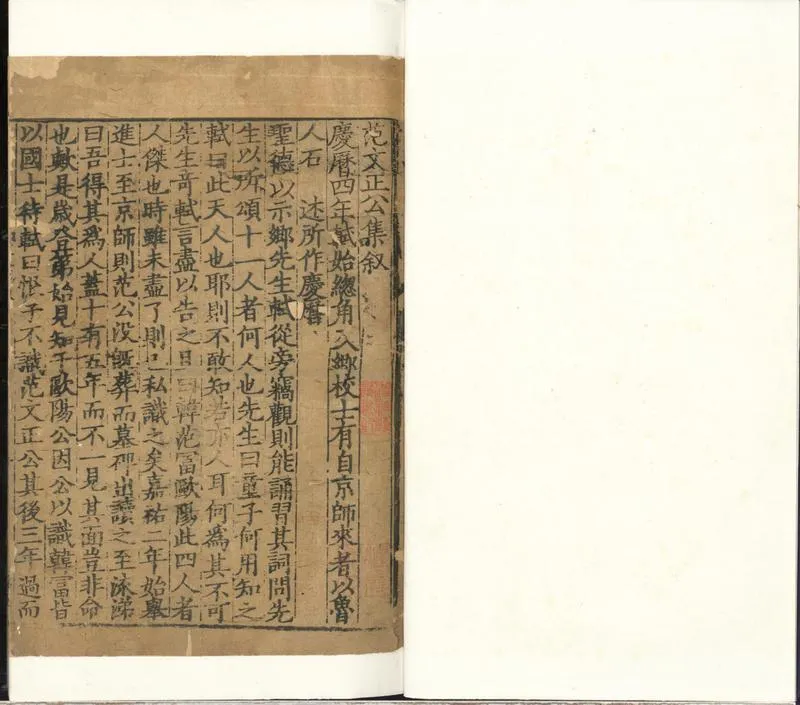 范文正公集叙
慶曆四年軾始總角入鄉校士有自京師來者以魯
人石 述所作慶曆
聖德以示鄉先生軾從旁竊觀則能誦習其詞問先
生以所頌十一人者何人也先生曰童子何用知之
軾曰此天人也耶則不敢知若亦人耳何爲其不可
先生奇軾言盡以告之且曰韓范冨歐陽此四人者
人傑也時雖未盡了則已私識之矣嘉祐二年始舉
進士至京師則范公没旣葬而墓碑出讀之至流涕
曰吾得其爲人蓋十有五年而不一見其面豈非命
也歟是歲登第始見知于歐陽公因公以識韓冨皆
以國士待軾曰恨子不識范文正公其後三年過而